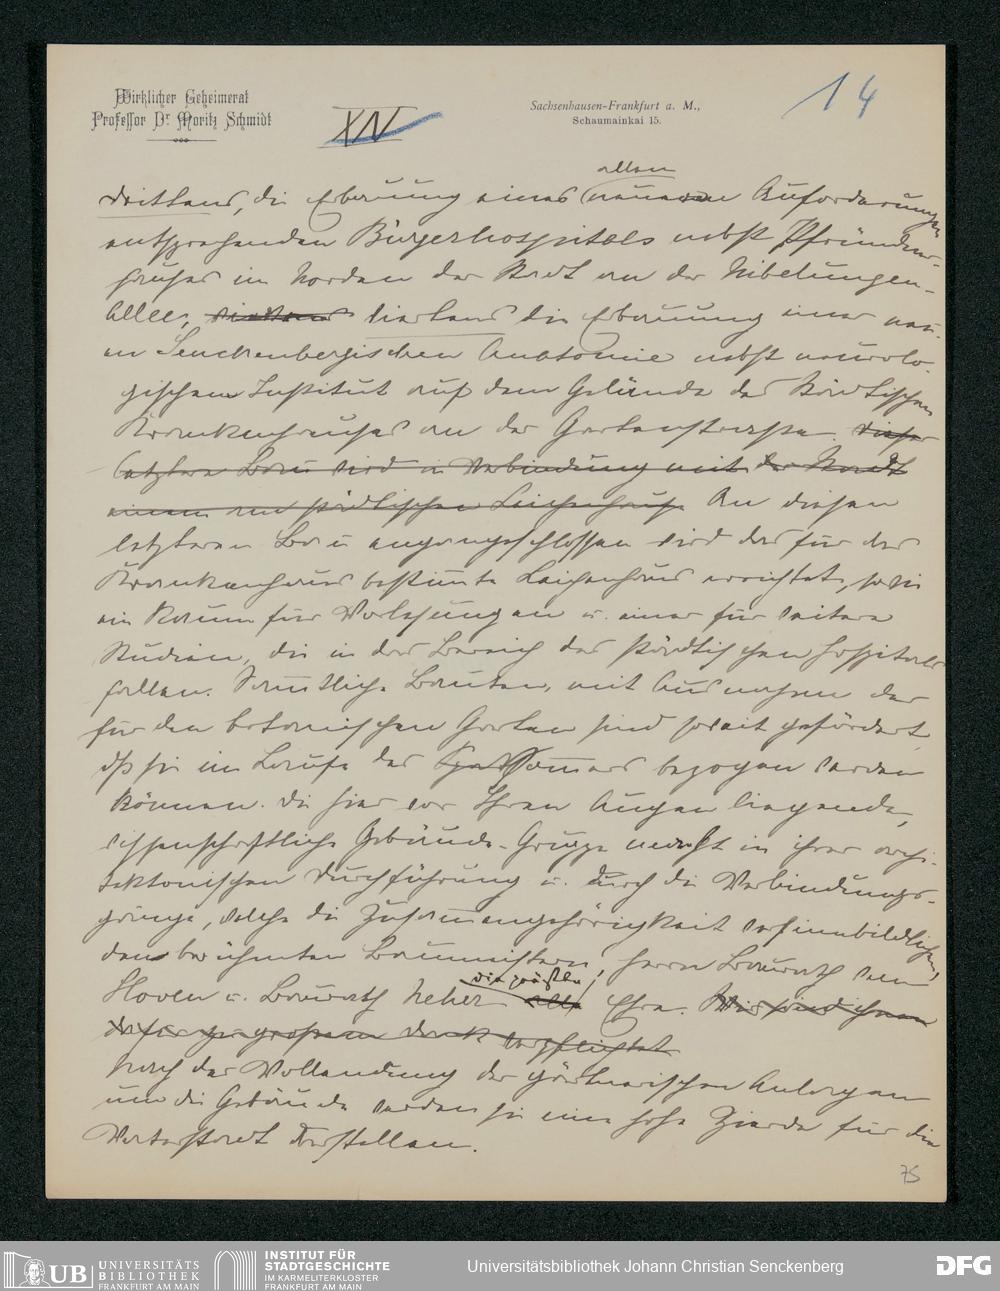 Wirklicher Geheimerat
Professor Dr Moritz Schmidt
XIV
Sachsenhausen-Frankfurt a. M.,
Schaumainkai 15.
14
allen
drittens, die Erbauung eines neuen Anforderungen
entsprechenden Bürgerhospitals nebst Pfründner-
hauses im Norden der Stadt an der Nibelungen-
Allee, viertens die Erbauung einer neu-
en Senckenbergischen Anatomie nebst neurolo-
gischem Institut auf dem Gelände des Städtischen
Krankenhauses an der Gartenstrasse. Dieser
letztere Bau wird in Verbindung mit der Stadt
einem am städtischen Leichenhause An diesen
letzteren Bau angeschlossen wird das für das
Krankenhaus bestimmte Leichenhaus errichtet, sowie
ein Raum für Vorlesungen u. einer für weitere
Studien, die in das Bereich des städtischen Hospitals
fallen. Sämtliche Bauten, mit Ausnahme der
für den botanischen Garten sind soweit gefördert,
dß sie im Laufe des Sommers bezogen werden
können. Die hier vor Ihren Augen liegende,
wissenschaftliche Gebäude-Gruppe macht in ihrer archi-
tektonischen Durchführung u. durch die Verbindungs-
gänge, welche die Zusammengehörigkeit versinnbildlichen,
den berühmten Baumeistern, Herrn Baurath von
die größte
Hoven u. Baurath Neher alle Ehre. Wir sind ihnen
dafür zu großem Dank verpflichtet
Nach der Vollendung der gärtnerischen Anlagen
um die Gebäude werden sie eine hohe Zierde für die
Vaterstadt darstellen.
75
UB UNIVERSITÄTS
BIBLIOTHEK
FRANKFURT AM MAIN
INSTITUT FÜR
STADTGESCHICHTE
IM KARMELITERKLOSTER
FRANKFURT AM MAIN
Universitätsbibliothek Johann Christian Senckenberg
DFG